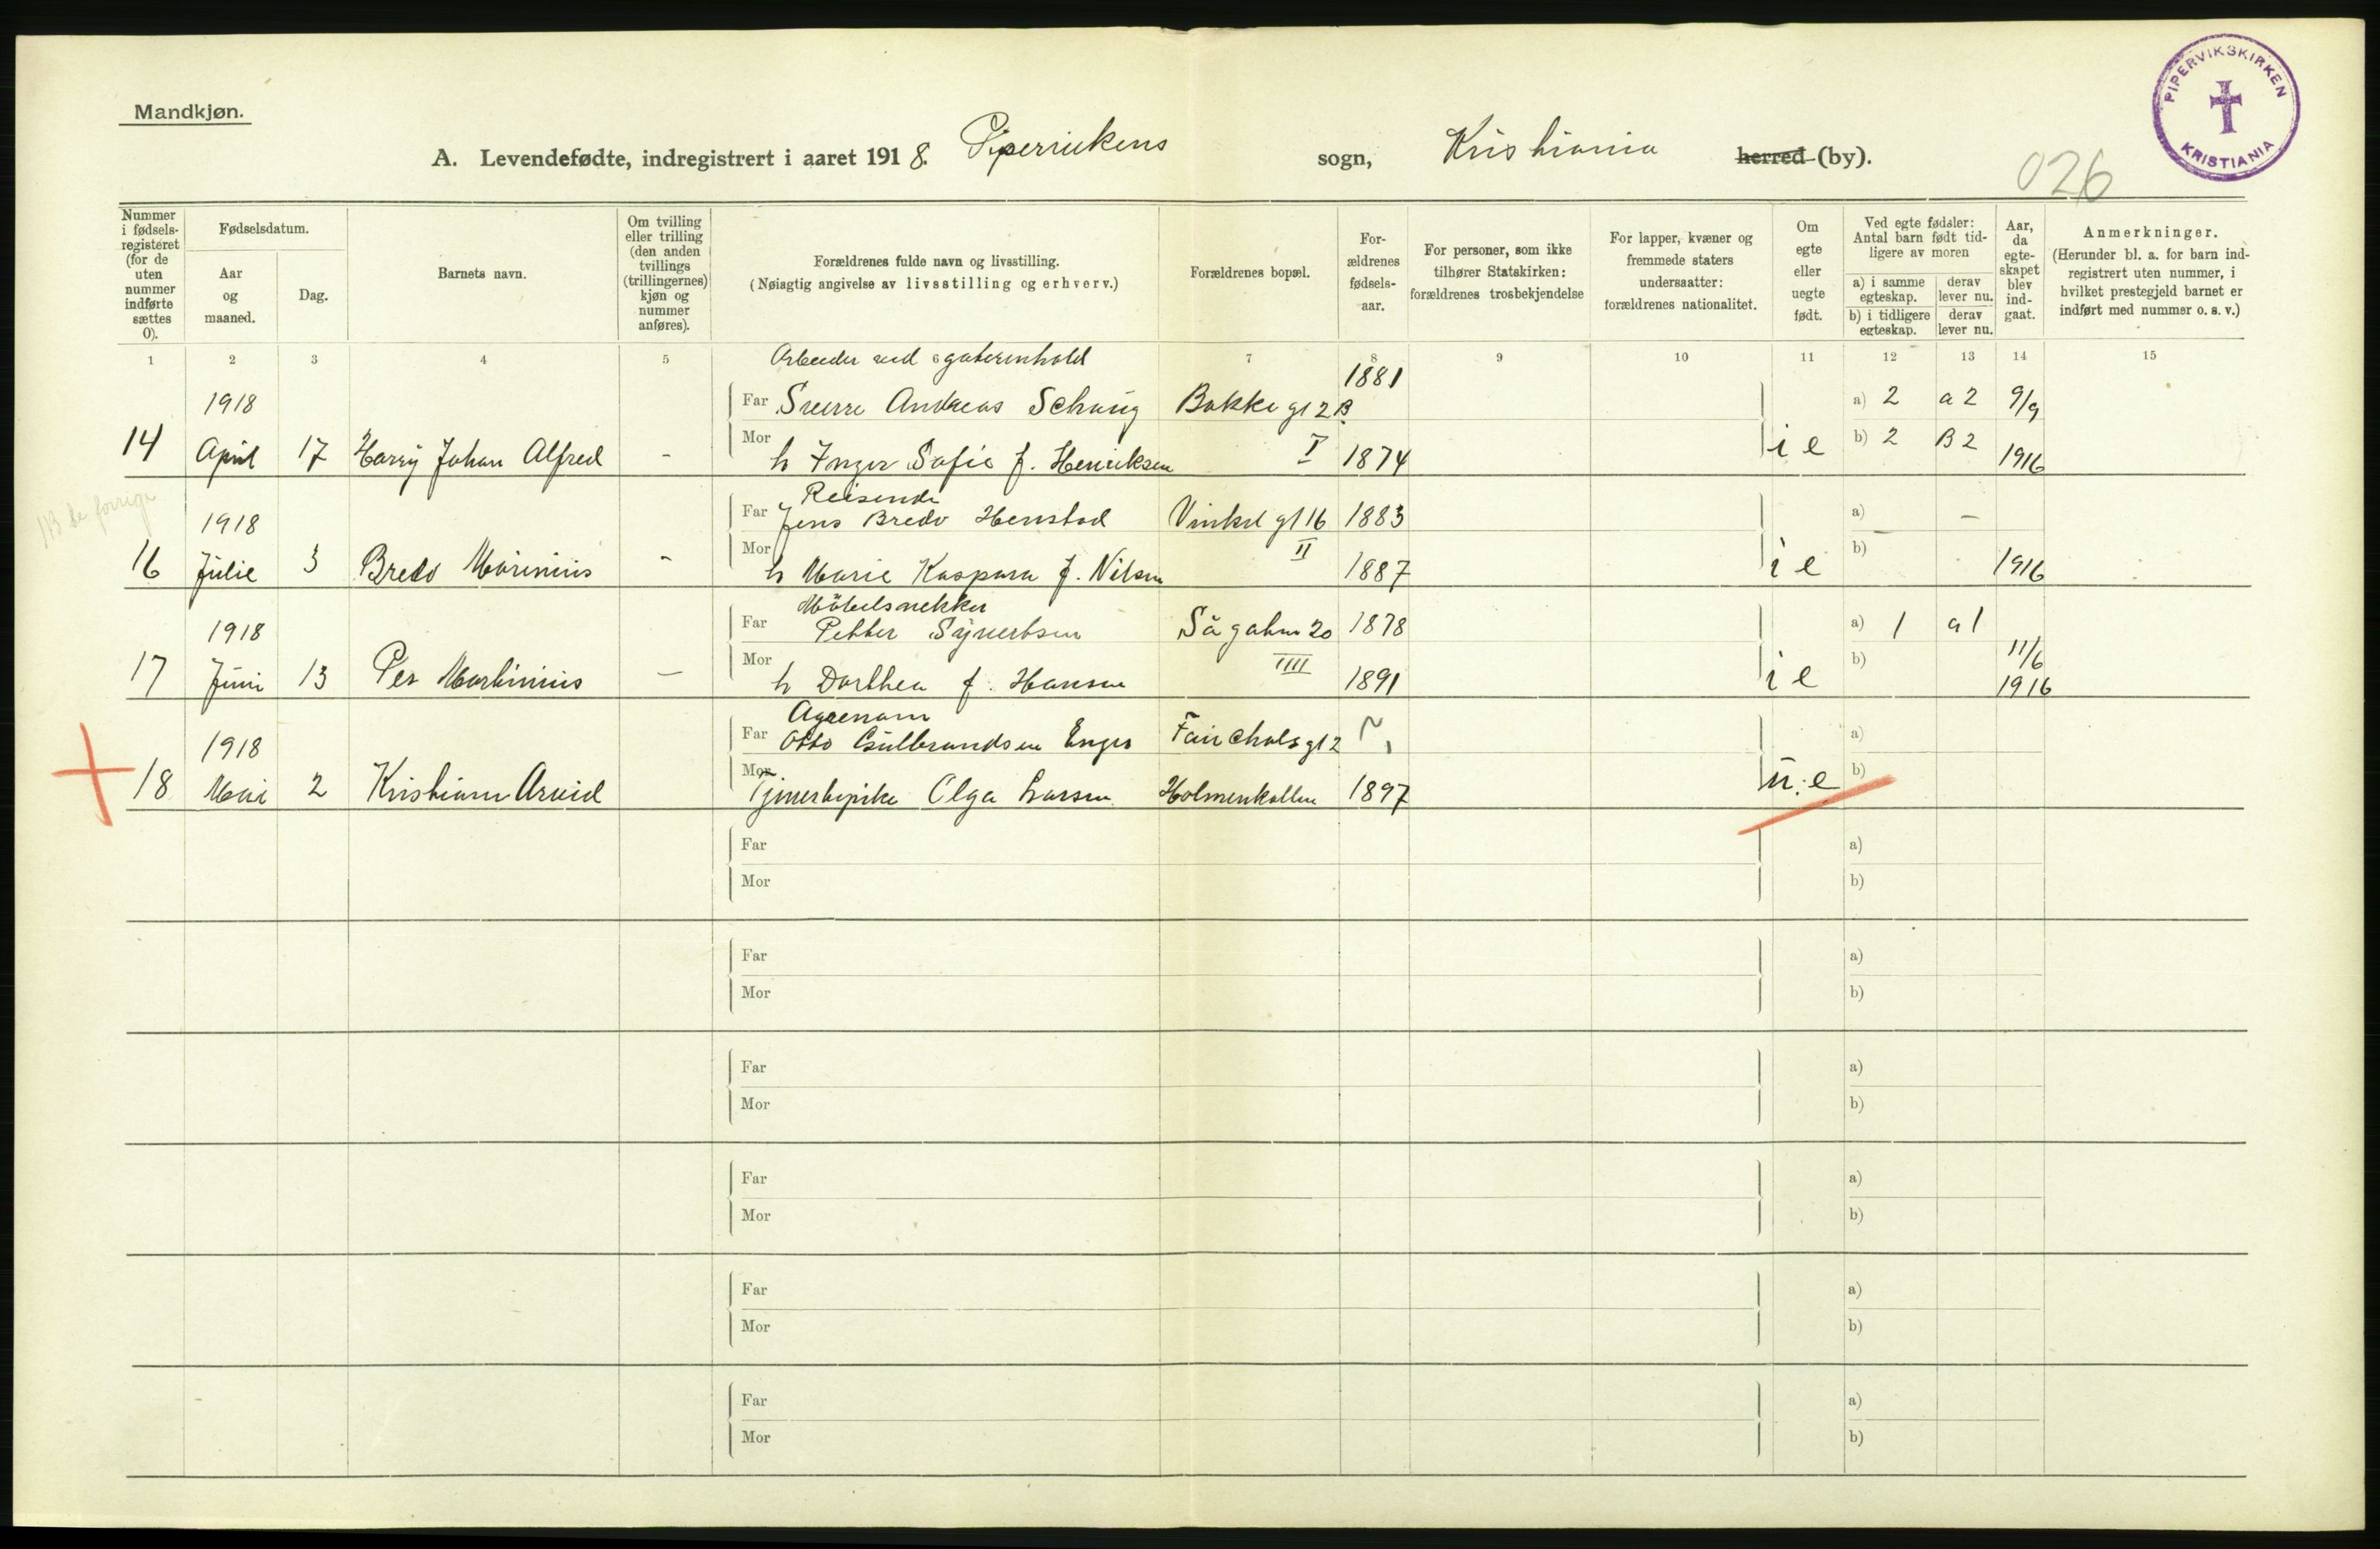 PIPERVIKSKIRKEN
KRISTIANIA
Mandkjøn.
A. Levendefødte, indregistrert i aaret 1918. Pipervikens sogn, Kristiania herred (by).
026
Nummer i fødsels-registeret (for de uten nummer indførte sættes 0).
Fødselsdatum.
Aar og maaned.
Dag.
Barnets navn.
Om tvilling eller trilling (den anden tvillings (trillingernes) kjøn og nummer anføres).
Forældrenes fulde navn og livsstilling.
(Nøiagtig angivelse av livsstilling og erhverv.)
Forældrenes bopæl.
For-ældrenes fødsels-aar.
For personer, som ikke tilhører Statskirken: forældrenes trosbekjendelse
For lapper, kvæner og fremmede staters undersaatter: forældrenes nationalitet.
Om egte eller uegte født.
Ved egte fødsler: Antal barn født tid-ligere av moren
a) i samme egteskap.
derav lever nu.
b) i tidligere egteskap.
derav lever nu.
Aar, da egte-skapet blev ind-gaat.
Anmerkninger.
(Herunder bl. a. for barn ind-registrert uten nummer, i hvilket prestegjeld barnet er indført med nummer o. s. v.)
1 2 3 4 5 6 7 8 9 10 11 12 13 14 15
Arbeider ved gaterenhold
1918 Far Sverre Andreas Schaug Bakkegt 2 B 1881 a) 2 a 2 9/9
14 April 17 Harry Johan Alfred - Mor h Inger Sofie f. Henriksen I 1874 i e b) 2 B 2 1916
Reisende
1918 Far Jens Bredo Henstad Vinkelgt 16 1883 a) –
16 Julie 3 Bredo Marinius - Mor h Marie Kaspara f. Nilsen II 1887 i e b) 1916
Möbelsnekker
1918 Far Petter Synertsen Sågaten 20 1878 a) 1 a 1
17 Juni 13 Per Martinius – Mor h Dorthea f. Hansen IIII 1891 i e b) 11/6 1916
1918 Far Otto Gulbrandsen Enger gt 2 a)
18 Mai 2 Kristian Arvid Mor Tjenestepike Olga Larsen Holmenkollen 1897 u. e b)
Far a)
Mor b)
Far a)
Mor b)
Far a)
Mor b)
Far a)
Mor b)
Far a)
Mor b)
Far a)
Mor b)